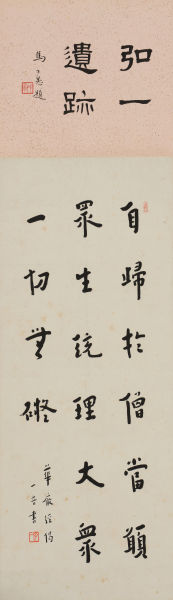 弘一
遺跡
馬公愚題
自歸於僧當願
眾生統理大眾
一切無礙
華嚴經偈
一音書